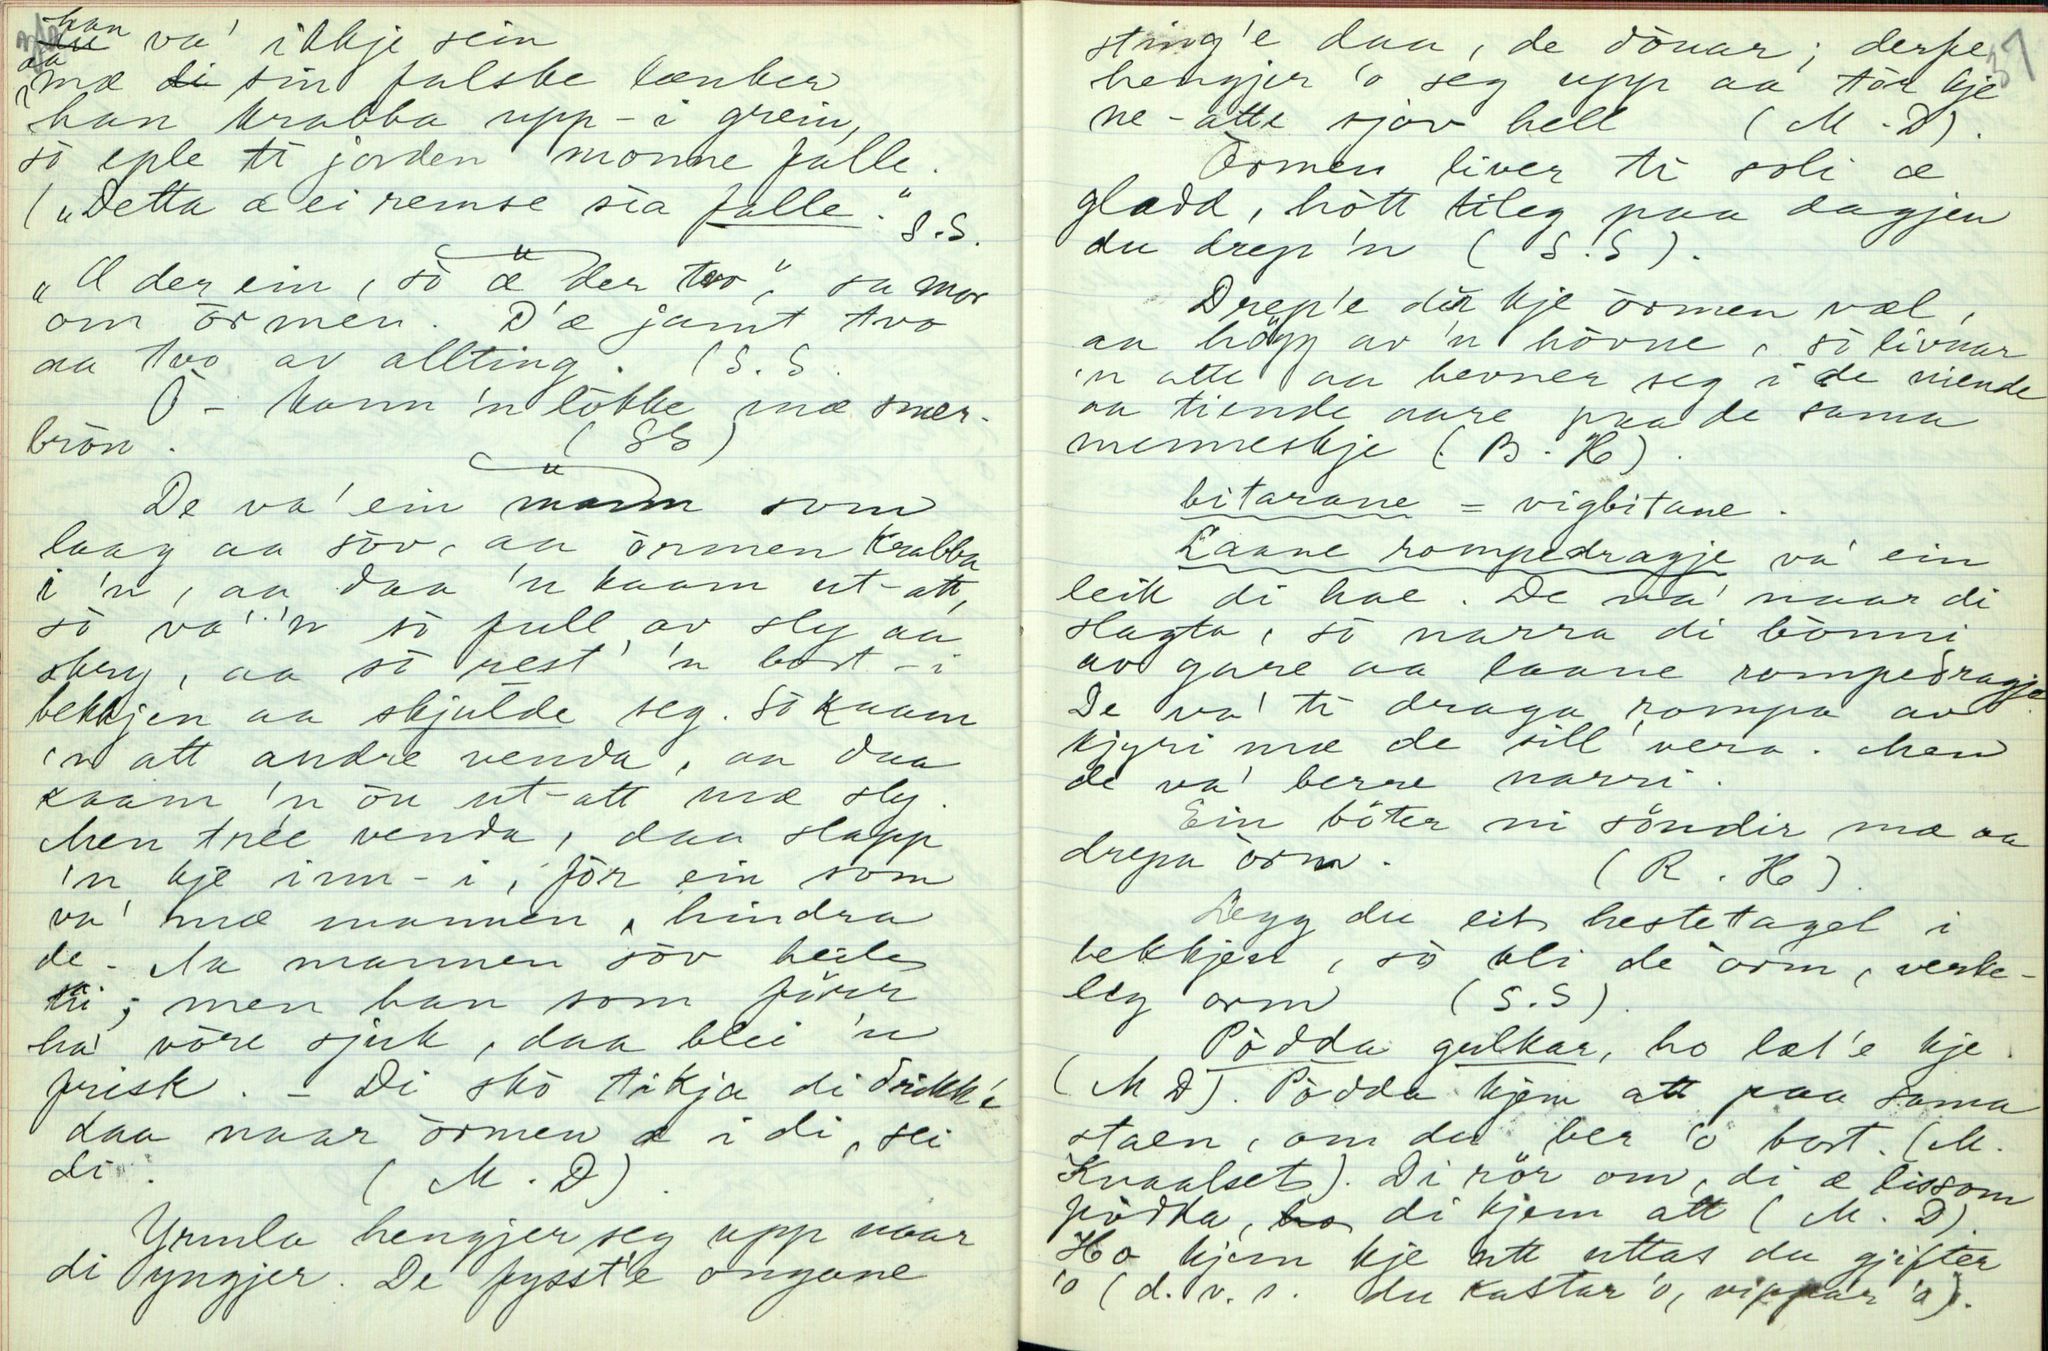 han va' ikkje sein
aa mæ di sin falske lænker
han krabba upp-i grein,
sò eple ti jorden monne falle.
(„Detta æ ei remse sia falle." S.S.
„Æ der ein, sò æ der tvo", sa mor
om òrmen. D'æ jamt tvo
aa tvo av allting. (S.S.
Ò - kann 'n lòkke mæ smer-
bròn. (SS)
De va' ein mann som
laag aa sòv, aa òrmen krabba
i 'n, aa daa 'n kaam ut-att,
sò va' 'n sò full av sly aa
skry, aa sò rest' 'n bort-i
bekkjen aa skjulde seg. Sò kaam
'n att andre venda, aa daa
kaam 'n òu ut-att mæ sly.
Men tree venda, daa slapp
'n kje inn-i, fòr ein som
va' mæ mannen, hindra
de. Aa mannen sòv heile
ti; men han som fòrr
ha' vòre sjuk, daa blei 'n
frisk. - Di skò tikja di drikk'e
daa naar òrmen æ i di, sei
di. (M.D).
Yrmla hengjer seg upp naar
di yngjer. De fysst'e ongane
37
sting'e daa, de dòuar; derfe
hengjer 'o seg upp aa tòr kje
ne-atte sjòv hell (M.D).
Òrmen liver ti soli æ
gladd, hòtt tileg paa dagjen
du drep 'n (S.S).
Drep'e du kje òrmen væl,
aa högg av 'n hòvne, sò livnar
'n atte aa hevner seg i de niende
aa tiende aare paa de sama
menneskje (B.H).
bitarane = vigbitane.
Laane rompedragje va' ein
leik di hae. De va' naar di
slagta, sò narra di bònni
av gare aa laane rompedragje.
De va' ti draga rompa av
kjyri mæ de sill vera. Men
de va' berre narri.
Ein böter ni söndir mæ aa
drepa òrm. (R.H).
Legg du eit hestetagel i
bekkjen, sò bli de òrm, verke-
leg orm (S.S).
Pòdda gulkar, ho læt'e kje.
(M D). Pòdda kjem att paa sama
staen, om du ber 'o bort. (M.
Kvaalset). Di rör om, di æ lissom
pòdda, ho di kjem att (M.D).
Ho kjem kje att uttas du gjifter
'o (d.v.s. du kastar 'o, vippar 'o).